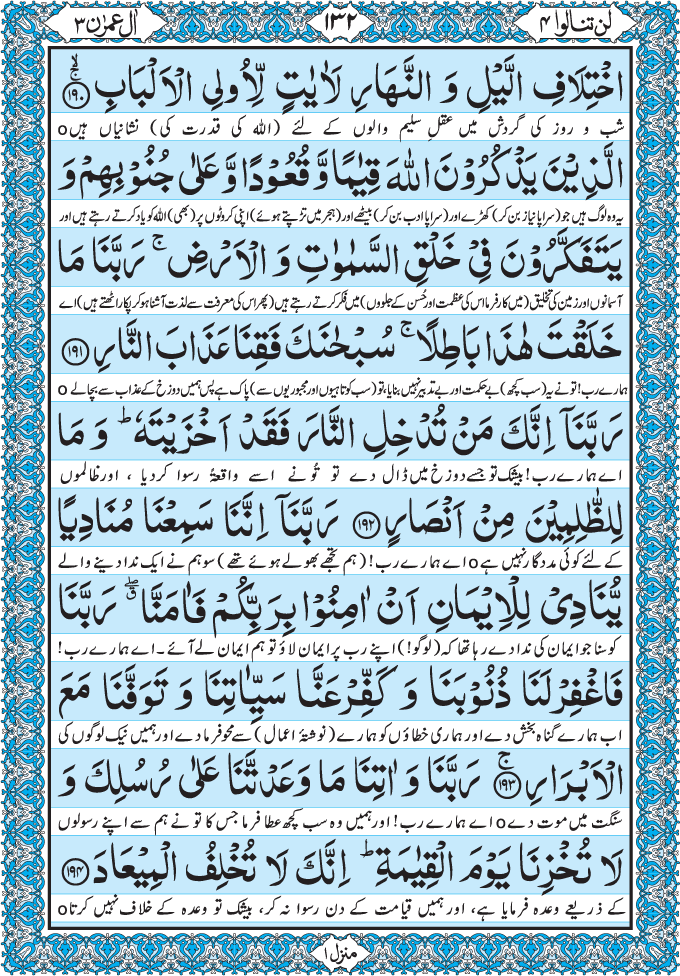 لن تنالوا ۴ ۱۳۲ اٰل عمرٰن ۳
اخْتِلَافِ الَّیْلِ وَ النَّهَارِ لَاٰیٰتٍ لِّاُولِی الْاَلْبَابِ ﴿۱۹۰﴾ۚۙ
شب و روز کی گردش میں عقلِ سلیم والوں کے لئے (اللہ کی قدرت کی) نشانیاں ہیںo
الَّذِیْنَ یَذْكُرُوْنَ اللّٰهَ قِیٰمًا وَّ قُعُوْدًا وَّ عَلٰی جُنُوْبِهِمْ وَ
یہ وہ لوگ ہیں جو (سراپا نیاز بن کر) کھڑے اور (سراپا ادب بن کر) بیٹھے اور (ہجر میں تڑپتے ہوئے) اپنی کروٹوں پر (بھی) اللہ کو یاد کرتے رہتے ہیں اور
یَتَفَكَّرُوْنَ فِیْ خَلْقِ السَّمٰوٰتِ وَ الْاَرْضِ ۚ رَبَّنَا مَا
آسمانوں اور زمین کی تخلیق (میں کار فرما اس کی عظمت اور حُسن کے جلووں) میں فکر کرتے رہتے ہیں (پھر اس کی معرفت سے لذت آشنا ہو کر پکار اٹھتے ہیں) اے
خَلَقْتَ هٰذَا بَاطِلًا ۚ سُبْحٰنَكَ فَقِنَا عَذَابَ النَّارِ ﴿۱۹۱﴾
ہمارے رب! تو نے یہ (سب کچھ) بے حکمت اور بے تدبیر نہیں بنایا، تو (سب کوتاہیوں اور مجبوریوں سے) پاک ہے پس ہمیں دوزخ کے عذاب سے بچالے o
رَبَّنَاۤ اِنَّكَ مَنْ تُدْخِلِ النَّارَ فَقَدْ اَخْزَیْتَهٗ ؕ وَ مَا
اے ہمارے رب! بیشک تو جسے دوزخ میں ڈال دے تو تُو نے اسے واقعۃً رسوا کر دیا، اور ظالموں
لِلظّٰلِمِیْنَ مِنْ اَنْصَارٍ ﴿۱۹۲﴾ رَبَّنَاۤ اِنَّنَا سَمِعْنَا مُنَادِیًا
کے لئے کوئی مددگار نہیں ہےo اے ہمارے رب! (ہم تجھے بھولے ہوئے تھے) سو ہم نے ایک ندا دینے والے
یُّنَادِیْ لِلْاِیْمَانِ اَنْ اٰمِنُوْا بِرَبِّكُمْ فَاٰمَنَّا ۖۗ رَبَّنَا
کو سنا جو ایمان کی ندا دے رہا تھا کہ (لوگو!) اپنے رب پر ایمان لاؤ تو ہم ایمان لے آئے۔ اے ہمارے رب!
فَاغْفِرْ لَنَا ذُنُوْبَنَا وَ كَفِّرْ عَنَّا سَیِّاٰتِنَا وَ تَوَفَّنَا مَعَ
اب ہمارے گناہ بخش دے اور ہماری خطاؤں کو ہمارے (نوشتۂ اعمال) سے محو فرما دے اور ہمیں نیک لوگوں کی
الْاَبْرَارِ ﴿۱۹۳﴾ۚ رَبَّنَا وَ اٰتِنَا مَا وَعَدْتَّنَا عَلٰی رُسُلِكَ وَ
سنگت میں موت دےo اے ہمارے رب! اور ہمیں وہ سب کچھ عطا فرما جس کا تو نے ہم سے اپنے رسولوں
لَا تُخْزِنَا یَوْمَ الْقِیٰمَةِ ؕ اِنَّكَ لَا تُخْلِفُ الْمِیْعَادَ ﴿۱۹۴﴾
کے ذریعے وعدہ فرمایا ہے، اور ہمیں قیامت کے دن رسوا نہ کر، بیشک تو وعدہ کے خلاف نہیں کرتاo
منزل ۱